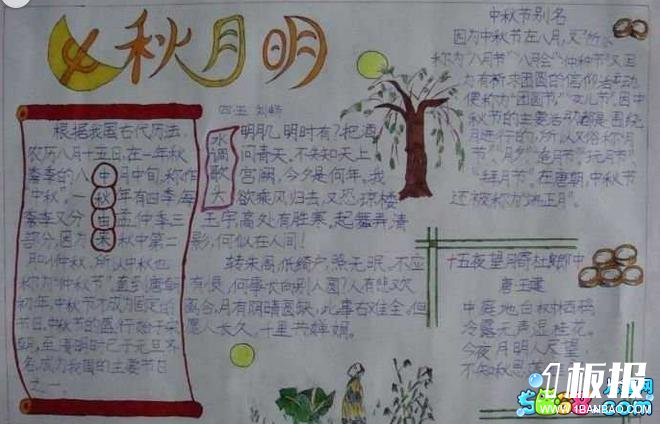 中秋月明
四.五
根据我国古代历法,
农历八月十五日,在一年秋
季季的八月中旬,称作
"中秋"。一年有四季每
季又分 孟仲季三
部分,因为 秋中第二
月叫仲秋,所以中秋也
称为"仲秋",直到唐朝
初年,中秋节才成为固定的
节日,中秋节的盛行始于宋
朝,至清明时已于元旦齐
名,成为我国的主要节日
之一.
中
秋
由
来
水调歌头
明月几时有?把酒
问青天。不知天上
宫阙,今夕是何年。我
欲乘风归去,又恐琼楼
玉宇,高处有胜寒。起舞弄清
影,何似在人间!
转朱阁,低绮户,照无眠。不应
有恨,何事长向别人圆?人有悲欢
离合,月有阴晴圆缺,此事右难全。但
愿人长久。千里共婵娟。
中秋节别名
因为中秋节在八月,又
称为"八月节""八月会""仲秋节"又因
为有祈求团圆的信仰活动,
便称为"团圆节""女儿节"。因中
秋节的主要活动都是围绕
月进行的,所以又俗称"月
节""月夕""追月节""玩月节"
"拜月节"。在唐朝,中秋节
还被称为"端正月"。
十五夜望月寄杜郎中
唐 王建
中庭地白树栖鸦
冷露无声湿桂花。
今夜月明人尽望
不知秋思
1板报
WWW.1BANBAO.COM
5068.com